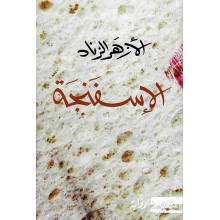 الأزهر الزناد
الإسفنجة